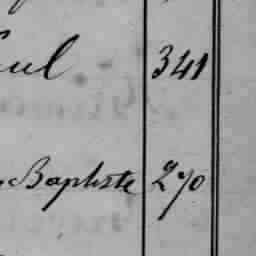 341
Baptiste 270